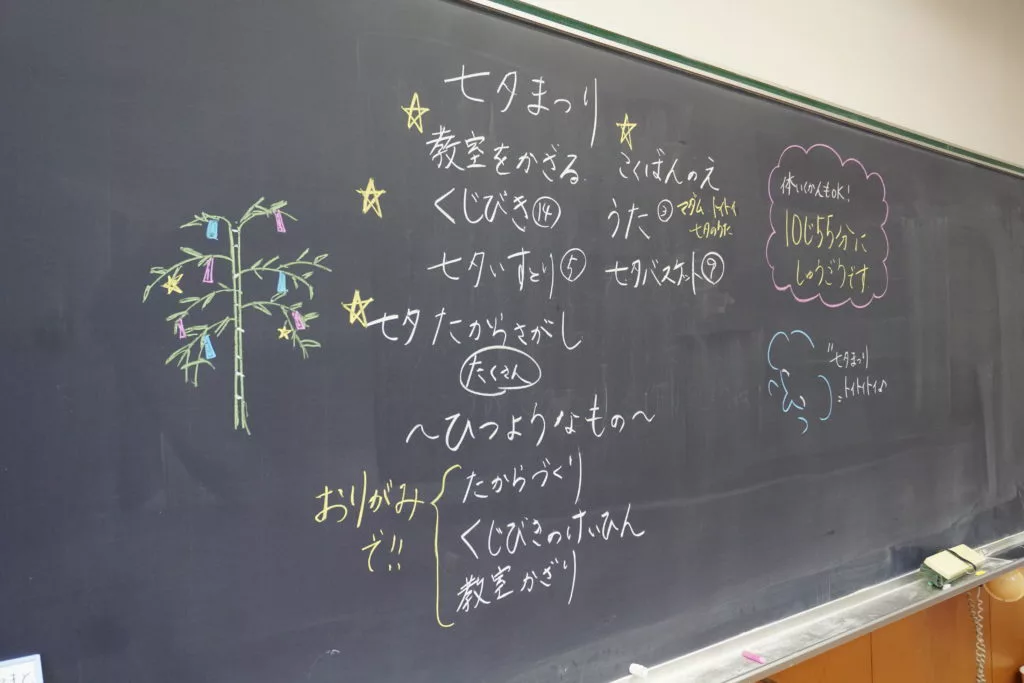 七夕まつり
教室をかざる
こくばんのえ
くじびき⑭
うた③
マダム トイトイ
七夕のうた
七夕いすとり⑤
七夕バスケット⑨
七夕たからさがし
たくさん
〜ひつようなもの〜
おりがみ
で!!
たからづくり
くじびきのけいひん
教室かざり
体いくかんもOK!
10じ55分に
しゅうごうです
"七夕まつり
トイトイトイ♪